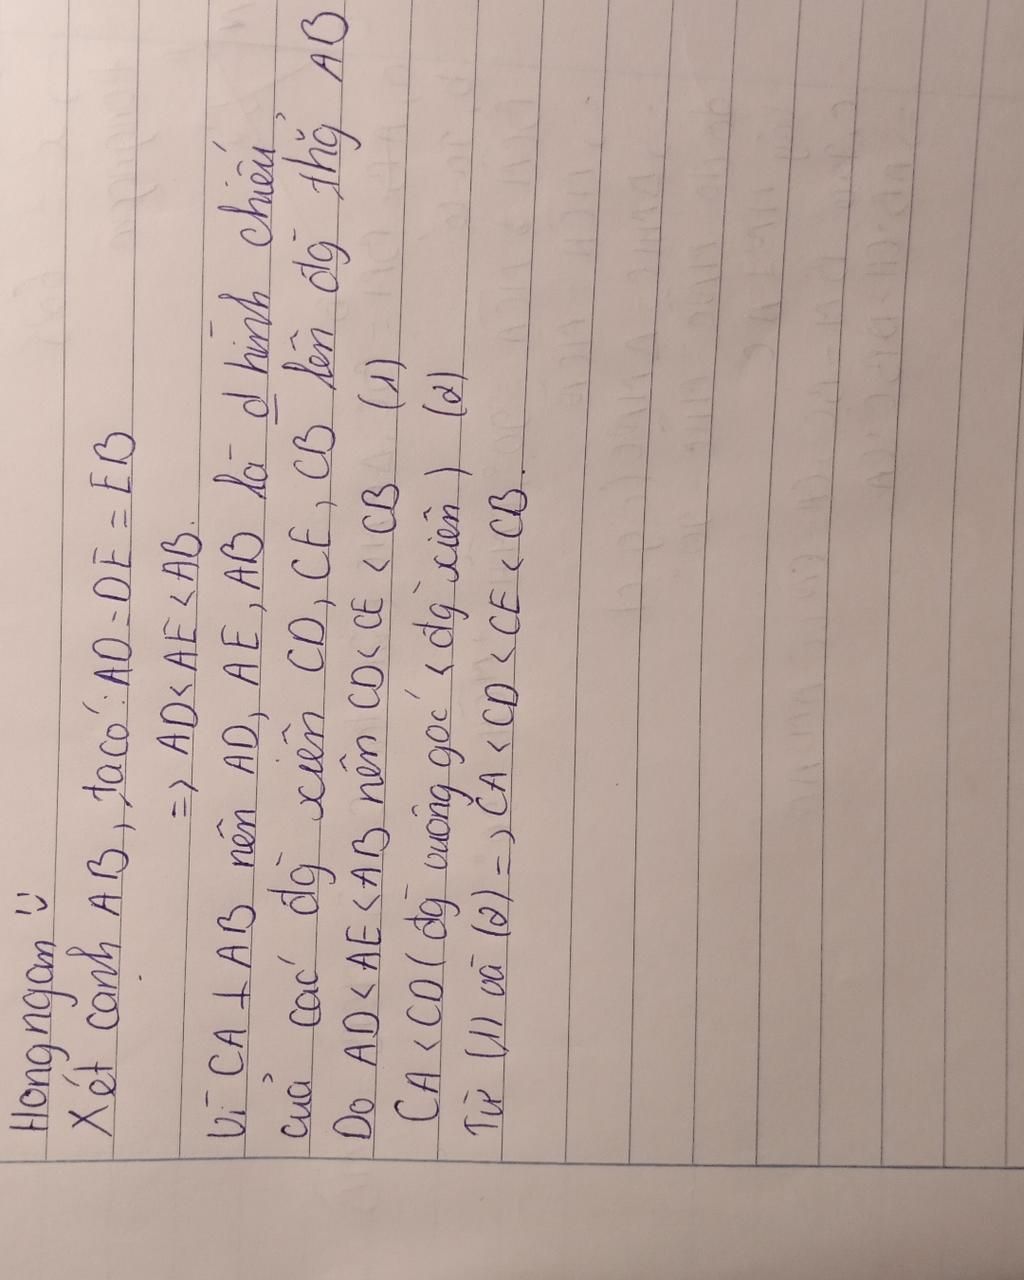 Hongngan ü
Xét canh AB, ta có: AD = DE = EB
=> AD < AE < AB.
Vì CA ⊥ AB nên AD, AE, AB là đ hình chiếu
của các đg xiên CD, CE, CB lên đg thg AB
Do AD < AE < AB nên CD < CE < CB (1)
CA < CD (đg vuông góc < đg xiên) (2)
Từ (1) và (2) => CA < CD < CE < CB.